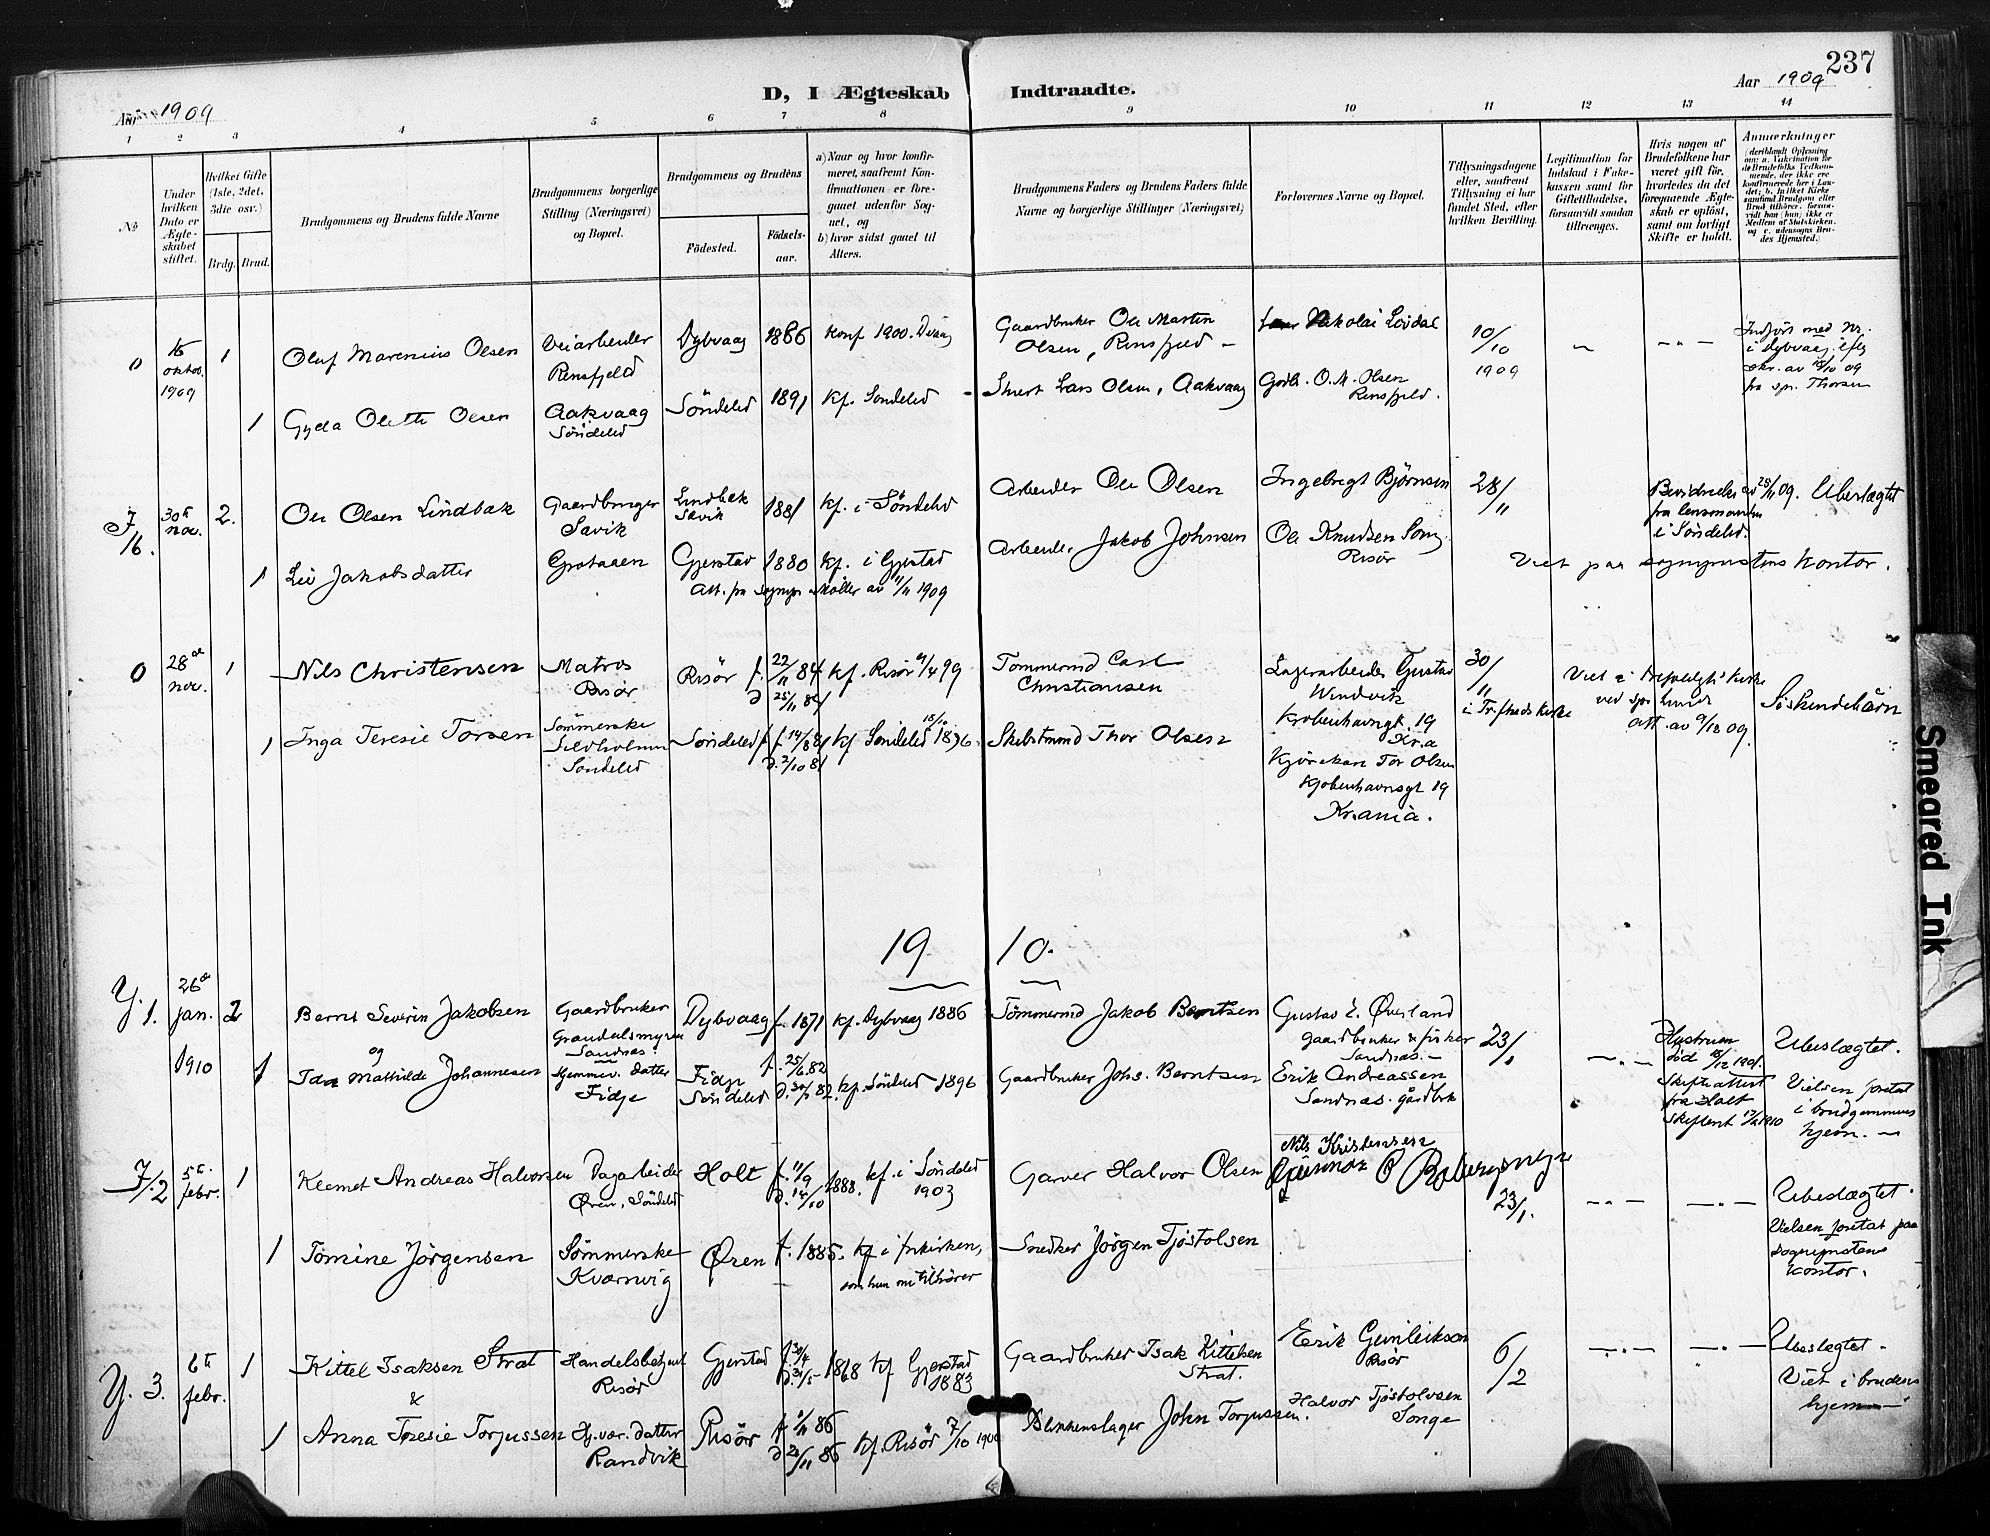 237
Aar 1909
D, I Ægteskab Indtraadte.
Aar 1909
1 2 3 4 5 6 7 8 9 10 11 12 13 14
No
Under hvilken Dato er Ægteskabet stiftet.
Hvilket Gifte (1ste, 2det, 3die osv.)
Brdg. Brud.
Brudgommens og Brudens fulde Navne
Brudgommens borgerlige Stilling (Næringsvei) og Bopæl.
Brudgommens og Brudens
Fødested.
Fødselsaar.
a) Naar og hvor konfirmeret, saafremt Konfirmationen er foregaaet udenfor Sognet, og
b) hvor sidst gaaet til Alters.
Brudgommens Faders og Brudens Faders fulde Navne og borgerlige Stillinger (Næringsvei)
Forlovernes Navne og Bopæl.
Tillysningsdagene eller, saafremt Tillysning ei har fundet Sted, efter hvilken Bevilling.
Legitimation for Indskud i Enkekassen samt for Giftetilladelse, forsaavidt saadan tiltrænges.
Hvis nogen af Brudefolkene har været gift før, hvorledes da det foregaaende Ægteskab er opløst, samt om lovligt Skifte er holdt.
Anmærkninger
0 16 oktob. 1909 1 Oluf Marenius Olsen Veiarbeider Rensfjeld Dybvaag 1886 Konf 1900. Gaardbruker Ole Martin Olsen, Rensfjeld - Nikolai Lövdal 10/10 1909
Indført med Nr. i Dybvaag, efter skr. av 19/10 09 fra spr. Thorsen
1 Gyda Olette Olsen Aakvaag Söndeled Söndeled 1891 Kf. Sondeled - Lars Olsen, Aakvaag Godb. O. M. Olsen Rensfjeld.
F/6. 30te nov. 2. Ole Olsen Lindbæk Gaardbruger Savik Lindbæk Savik 1881 kf. i Söndeled Arbeider Ole Olsen Ingebregt Björnsen 28/11 fra lensmanden i Söndeled. Ubeslægtet
1 Liv Jakobsdatter Gjerstad 1880 kf. i Gjerstad Arbeider Jakob Johnsen Ole Knudsen Risør Viet paa sogneprestens kontor.
Att. fra sognepr. Møller av 11/11 1909
0 28de nov. 1 Nils Christensen Matros Risör Risör f. 22/11 84 d 25/11 84 kf. Risör 99 Tömmermd Carl Christiansen Lagerarbeider Gustav Windvik Kröbenhavngt 19 Kr.a 30/11 Søskendebarn
att. av 9/12 09.
1 Inga Teresie Torsen Sömmerske Söndeled Söndeled f. 14/8 81 d. 2/10 81 kf Söndeled 1896 Skibstmmd Thor Olsen Kjörekar Tor Olsen Kjøbenhavnsgt 19 Kr.ania.
1910.
Y. 1. 26de jan. 1910 2 Bernt Severin Jakobsen Gaardbruker Grandalsmyren Sandnæs. Dybvaag f. 1871 kf. Dybvaag 1886 Tömmermd Jakob Berntsen Gustav E. Øverland gaardbruker & fisker Sandnæs. - 23/1 Hustruen död 18/12 1901. Skifteattest fra Holt Skifteret 1910 Ubeslægtet. Vielsen foretat i brudgommens hjem. -
og
1 Ida Mathilde Johannesen Hjemmev. datter Fidje Fidje Söndeled f. 25/6 82 d. 30/7 82. kf. Söndeled 1896 Gaardbruker Johs. Berntsen Erik Andreassen Sandnæs. gårdbrk
F. 2 5te febr. 1 Klemet Andreas Halvorsen Dagarbeider Øren, Söndeled Holt f. 11/9 d. 14/10 1888. kf. i Söndeled 1903 Garver Halvor Olsen Nils Kristensen 23/1. Ubeslægtet. Vielsen foretat paa sogneprestens kontor.
1 Tomine Jörgensen Sömmerske Kvarnvig Øren f. 1885. kf i frikirken, som hun nu tilhörer Snedker Jörgen Tjöstolsen
Y. 3. 6te febr. 1 Kittel Isaksen Strat Handelsbetjent Risör Gjerstad f 30/4 d. 31/5 1868 kf Gjerstad 1883 Gaardbruker Isak Kittelsen Strat. Erik Risör 6/2 Ubeslægtet. Viet i brudens hjem
&
1 Anna Teresie Torjussen Hj.vær. datter Randvik Risör 86 d 86 kf. Risör 7/10 1900 Blikkenslager John Torjussen. Halvor Tjöstolvsen Songe
Smeared Ink